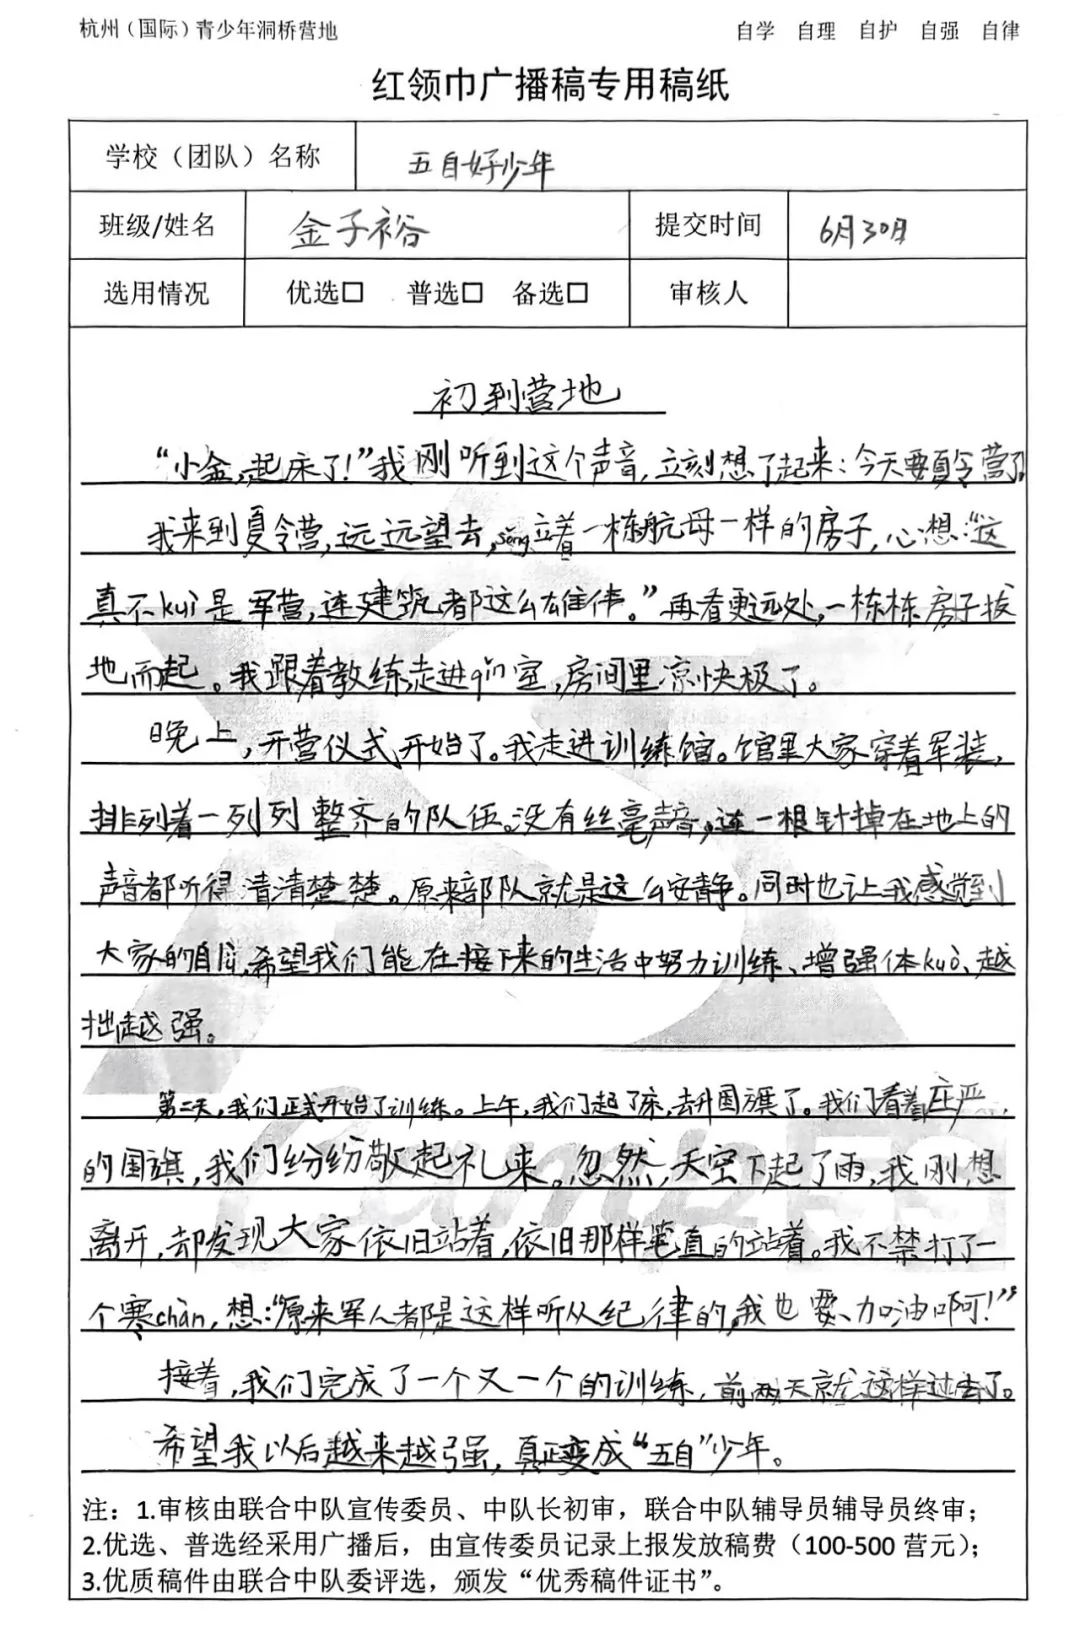 杭州（国际）青少年洞桥营地
自学 自理 自护 自强 自律
红领巾广播稿专用稿纸
学校（团队）名称 五自好少年
班级/姓名 金子裕 提交时间 6月30日
选用情况 优选□ 普选□ 备选□ 审核人
初到营地
“小金,起床了!”我刚听到这个声音,立刻想了起来:今天要夏令营了
我来到夏令营,远远望去,sǒng立着一栋航母一样的房子,心想:“这
真不kuì是军营,连建筑都这么雄伟。”再看更远处,一栋栋房子拔
地而起。我跟着教练走进qǐn室,房间里凉快极了。
晚上,开营仪式开始了。我走进训练馆。馆里大家穿着军装,
排列着一列列整齐的队伍。没有丝毫声音,连一根针掉在地上的
声音都听得清清楚楚。原来部队就是这么安静。同时也让我感觉到
大家的自,希望我们能在接下来的生活中努力训练、增强体kuò、越
越强。
第二天,我们正式开始了训练。上午,我们起了床,去升国旗了。我们看着庄严
的国旗,我们纷纷敬起礼来。忽然,天空下起了雨,我刚想
离开,却发现大家依旧站着,依旧那样笔直的站着。我不禁打了一
个寒chàn,想:“原来军人都是这样听从纪律的,我也要加油啊!”
接着,我们完成了一个又一个的训练,前两天就这样过去了。
希望我以后越来越强,真正变成“五自”少年。
注：1.审核由联合中队宣传委员、中队长初审，联合中队辅导员辅导员终审；
2.优选、普选经采用广播后，由宣传委员记录上报发放稿费（100-500 营元）；
3.优质稿件由联合中队委评选，颁发“优秀稿件证书”。